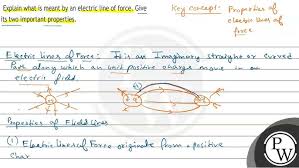 Explain what is meant by an electric line of force. Give
its two important properties.
Key concept- Properties of
electric lines of
force
Electric lines of Force: It is an Imaginary straight or curved
Path along which an unit positive charges move in an
electric field.
Properties of Field lines
(1) Electric lines of Force originate from a positive
char
P